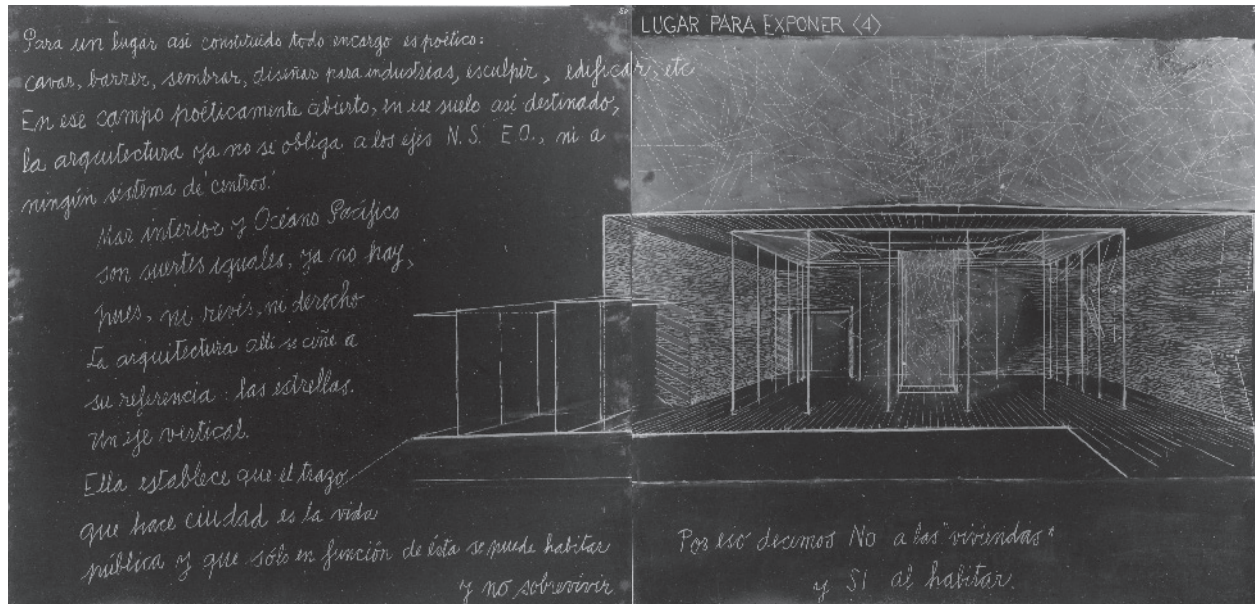 Para un lugar así constituido todo encargo es poético:
cavar, barrer, sembrar, diseñar para industrias, esculpir, edificar, etc
En ese campo poéticamente abierto, en ese suelo así destinado,
la arquitectura ya no se obliga a los ejes N.S. E.O., ni a
ningún sistema de 'centros'.
Mar interior y Océano Pacífico
son suertes iguales, ya no hay,
pues, ni revés, ni derecho
La arquitectura allí se ciñe a
su referencia: las estrellas.
Un eje vertical.
Ella establece que el trazo
que hace ciudad es la vida
pública y que sólo en función de ésta se puede habitar
y no sobrevivir
LUGAR PARA EXPONER <4>
Por eso decimos No a las "viviendas"
y SI al habitar.